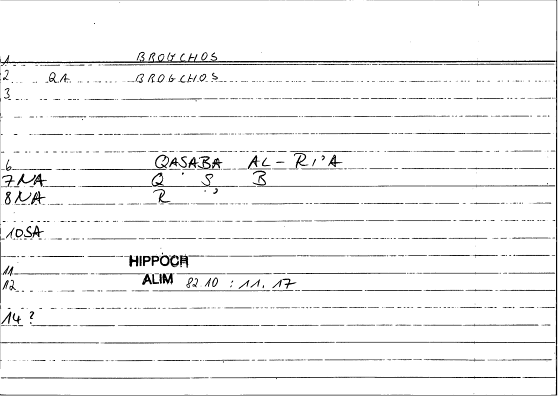 1 BROGCHOS
2 QA BROGCHOS
3
6 QASABA AL-RI'A
7NA Q S B
8NA R '
10SA
11 HIPPOCR
12 ALIM 8210 : 11, 17
14 ?